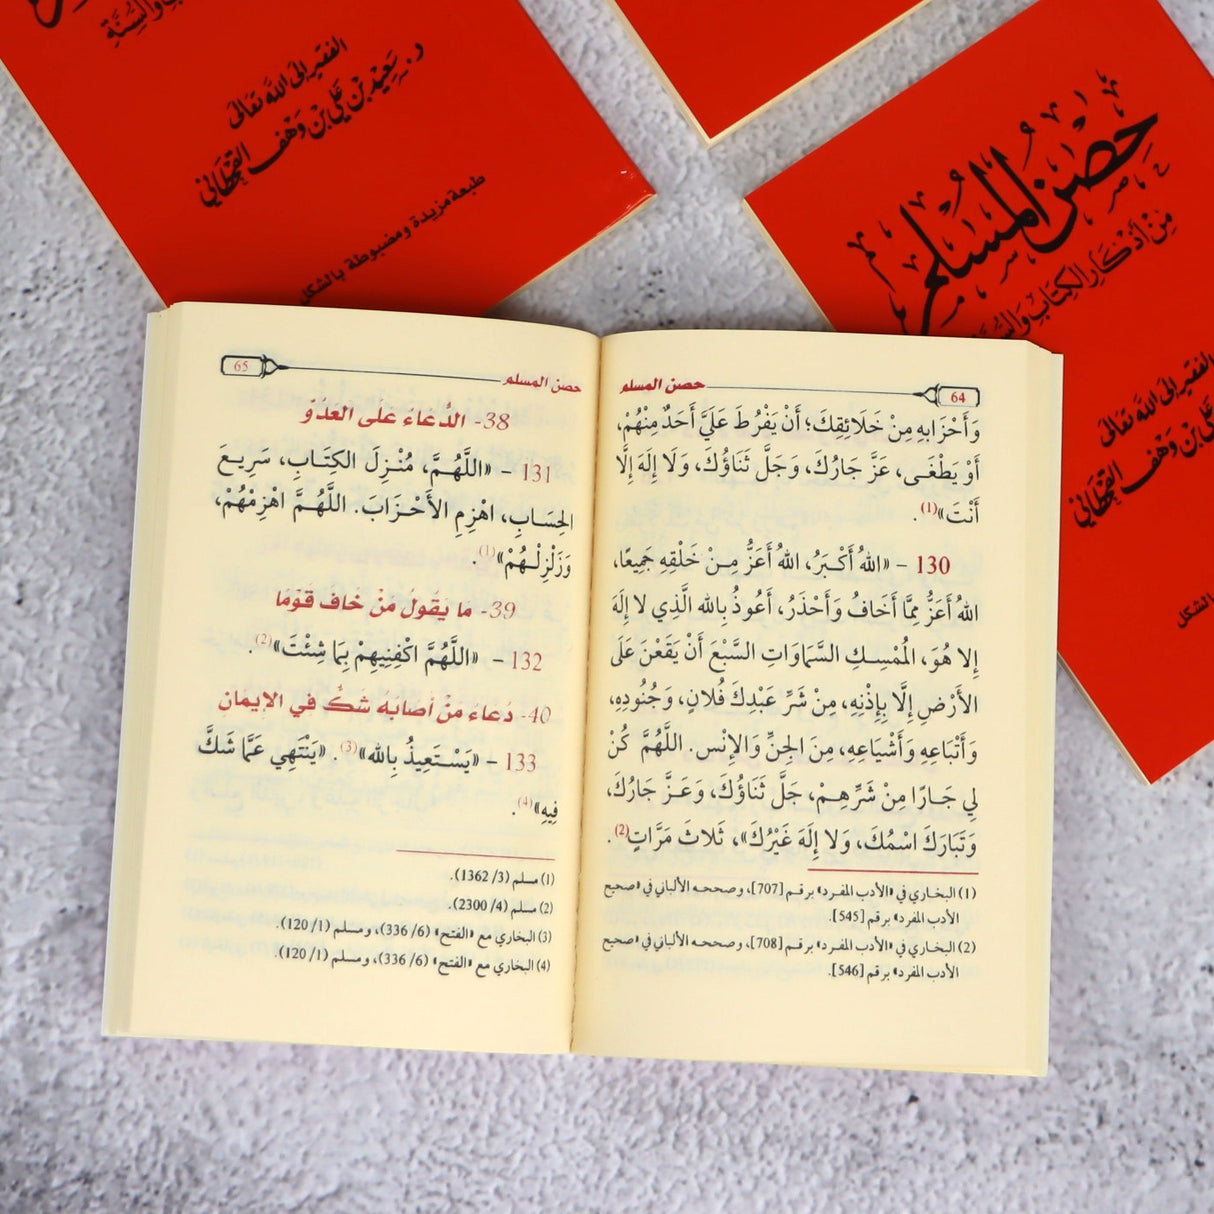 من أذكار الكتاب والسنة
الفقير إلى الله تعالى
د. سعيد بن علي بن وهف القحطاني
طبعة مزيدة ومضبوطة بالشكل
حصن المسلم
مِنْ أذْكَارِ الكِتَابِ وَالسُّنَّة
الفقير إلى الله تعالى
علي بن وهف القحطاني
بالشكل
64 حصن المسلم
وَأَحْزَابِهِ مِنْ خَلَائِقِكَ؛ أَنْ يَفْرُطَ عَلَيَّ أَحَدٌ مِنْهُمْ،
أَوْ يَطْغَى، عَزَّ جَارُكَ، وَجَلَّ ثَنَاؤُكَ، وَلَا إِلَهَ إِلَّا
أَنْتَ»(1).
130 – «اللهُ أَكْبَرُ، اللهُ أَعَزُّ مِنْ خَلْقِهِ جَمِيعًا،
اللهُ أَعَزُّ مِمَّا أَخَافُ وَأَحْذَرُ، أَعُوذُ بِاللهِ الَّذِي لا إِلَهَ
إِلا هُوَ، الْمُمْسِكِ السَّمَاوَاتِ السَّبْعَ أَنْ يَقَعْنَ عَلَى
الأَرْضِ إِلَّا بِإِذْنِهِ، مِنْ شَرِّ عَبْدِكَ فُلانٍ، وَجُنُودِهِ،
وَأَتْبَاعِهِ وَأَشْيَاعِهِ، مِنَ الجِنِّ وَالإِنْسِ. اللَّهُمَّ كُنْ
لِي جَارًا مِنْ شَرِّهِمْ، جَلَّ ثَنَاؤُكَ، وَعَزَّ جَارُكَ،
وَتَبَارَكَ اسْمُكَ، وَلا إِلَهَ غَيْرُكَ»، ثَلاثَ مَرَّاتٍ(2).
(1) البخاري في «الأدب المفرد» برقم [707]، وصححه الألباني في «صحيح
الأدب المفرد» برقم [545].
(2) البخاري في «الأدب المفرد» برقم [708]، وصححه الألباني في «صحيح
الأدب المفرد» برقم [546].
حصن المسلم 65
38- الدُّعَاءُ عَلَى العَدُوِّ
131 – «اللَّهُمَّ، مُنْزِلَ الكِتَابِ، سَرِيعَ
الحِسَابِ، اهْزِمِ الأَحْزَابَ. اللَّهُمَّ اهْزِمْهُمْ،
وَزَلْزِلْهُمْ»(1).
39- مَا يَقُولُ مَنْ خَافَ قَوْمًا
132 – «اللَّهُمَّ اكْفِنِيهِمْ بِمَا شِئْتَ»(2).
40- دُعَاءُ مَنْ أَصَابَهُ شَكٌّ فِي الإِيمَانِ
133 – «يَسْتَعِيذُ بِالله»(3). «يَنْتَهِي عَمَّا شَكَّ
فِيهِ»(4).
(1) مسلم (3/ 1362).
(2) مسلم (4/ 2300).
(3) البخاري مع «الفتح» (6/ 336)، ومسلم (1/ 120).
(4) البخاري مع «الفتح» (6/ 336)، ومسلم (1/ 120).